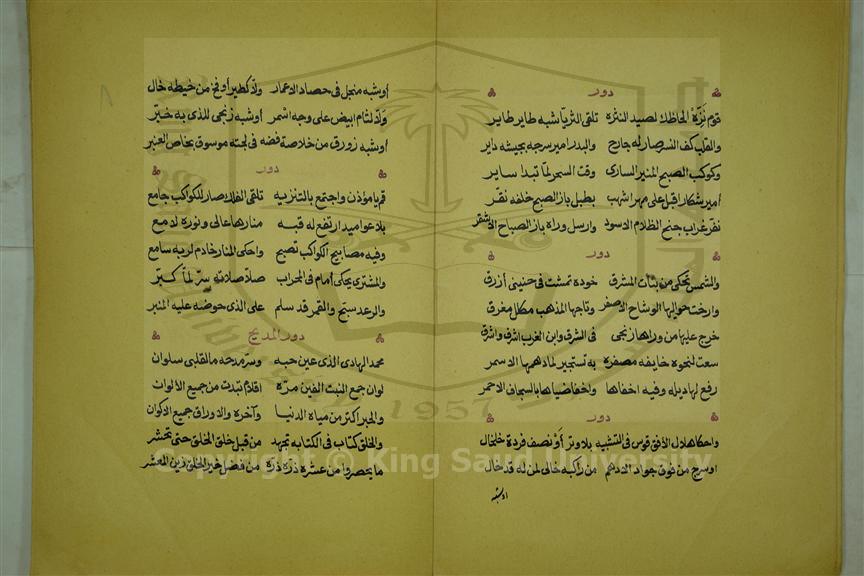 دور
قوم نزّه الحاظك لصيد النثرة تلقى الثريا شبه طاير طاير
والقلب كف النسر صار له جارح والبدر امير سرجه بجيشه داير
وكوكب الصبح المنير السارى وقت السحر لمّا تبدا ساير
أمير شكار اقبل على مهر اشهب بطبل باز الصبح خلفه نقر
نقر غراب جنح الظلام الاسود وارسل وراه باز الصباح الاشقر
دور
والشمس تحكى من بنات المشرق خوده تمشت فى حنينى أزرق
وارخت حواليها الوشاح الاصفر وتاجها المذهب مكلل مغرق
خرج عليها من وراها زنجى فى الشرق وابن الغرب اشرف واشرق
سعت لنحوه خايفه مصفره به تستجير لما دهمها الاسمر
رفع لها ديله وفيه اخفاها واخفا ضياها بالسجاف الاحمر
دور
واحكا هلال الأفق قوس فى التشبيه بلا وتر أو نصف فردة خلخال
او سرج من فوق جواد الادهم من راكبه خالى لمن له قد خال
اوشبه
أوشبه منجل فى حصاد الاعمار ولّا كطير أو فخ من خيطه خال
ولّا لثام ابيض على وجه اسمر أو شبه زنجى للذى به خبّر
أو شبه زورق من خلاصة فضه فى لجته موسوق بخاص العنبر
دور
قم يا مؤذن واجتمع بالتنزيه تلقى الفلك صار للكواكب جامع
بلا عواميد ارتفع له قبه منارها عالى ونوره لامع
وفيه مصابيح الكواكب تصبح واحكى المنار خادم لربه سامع
والمشترى يحكى أمام فى المحراب صلّا صلاته سرّ لمّا كبّر
والرعد سبّح والقمر قد سلم على الذى حوضه عليه المنبر
دور المديح
محمد الهادى الذى عين حبه وسرّ مدحه ما لقلبى سلوان
لو ان جمع النبت الفين مرّه اقلام تبدت من جميع الالوان
والحبر اكثر من مياه الدنيا وآخره والاوراق جميع الاكوان
والخلق كتاب فى الكتابه تجهد من قبل خلق الخلق حتى تحشر
ما يحصروا من عشره ذرّة ذرّه من فضل خير الخلق زين المعشر
Copyright © King Saud University
1957